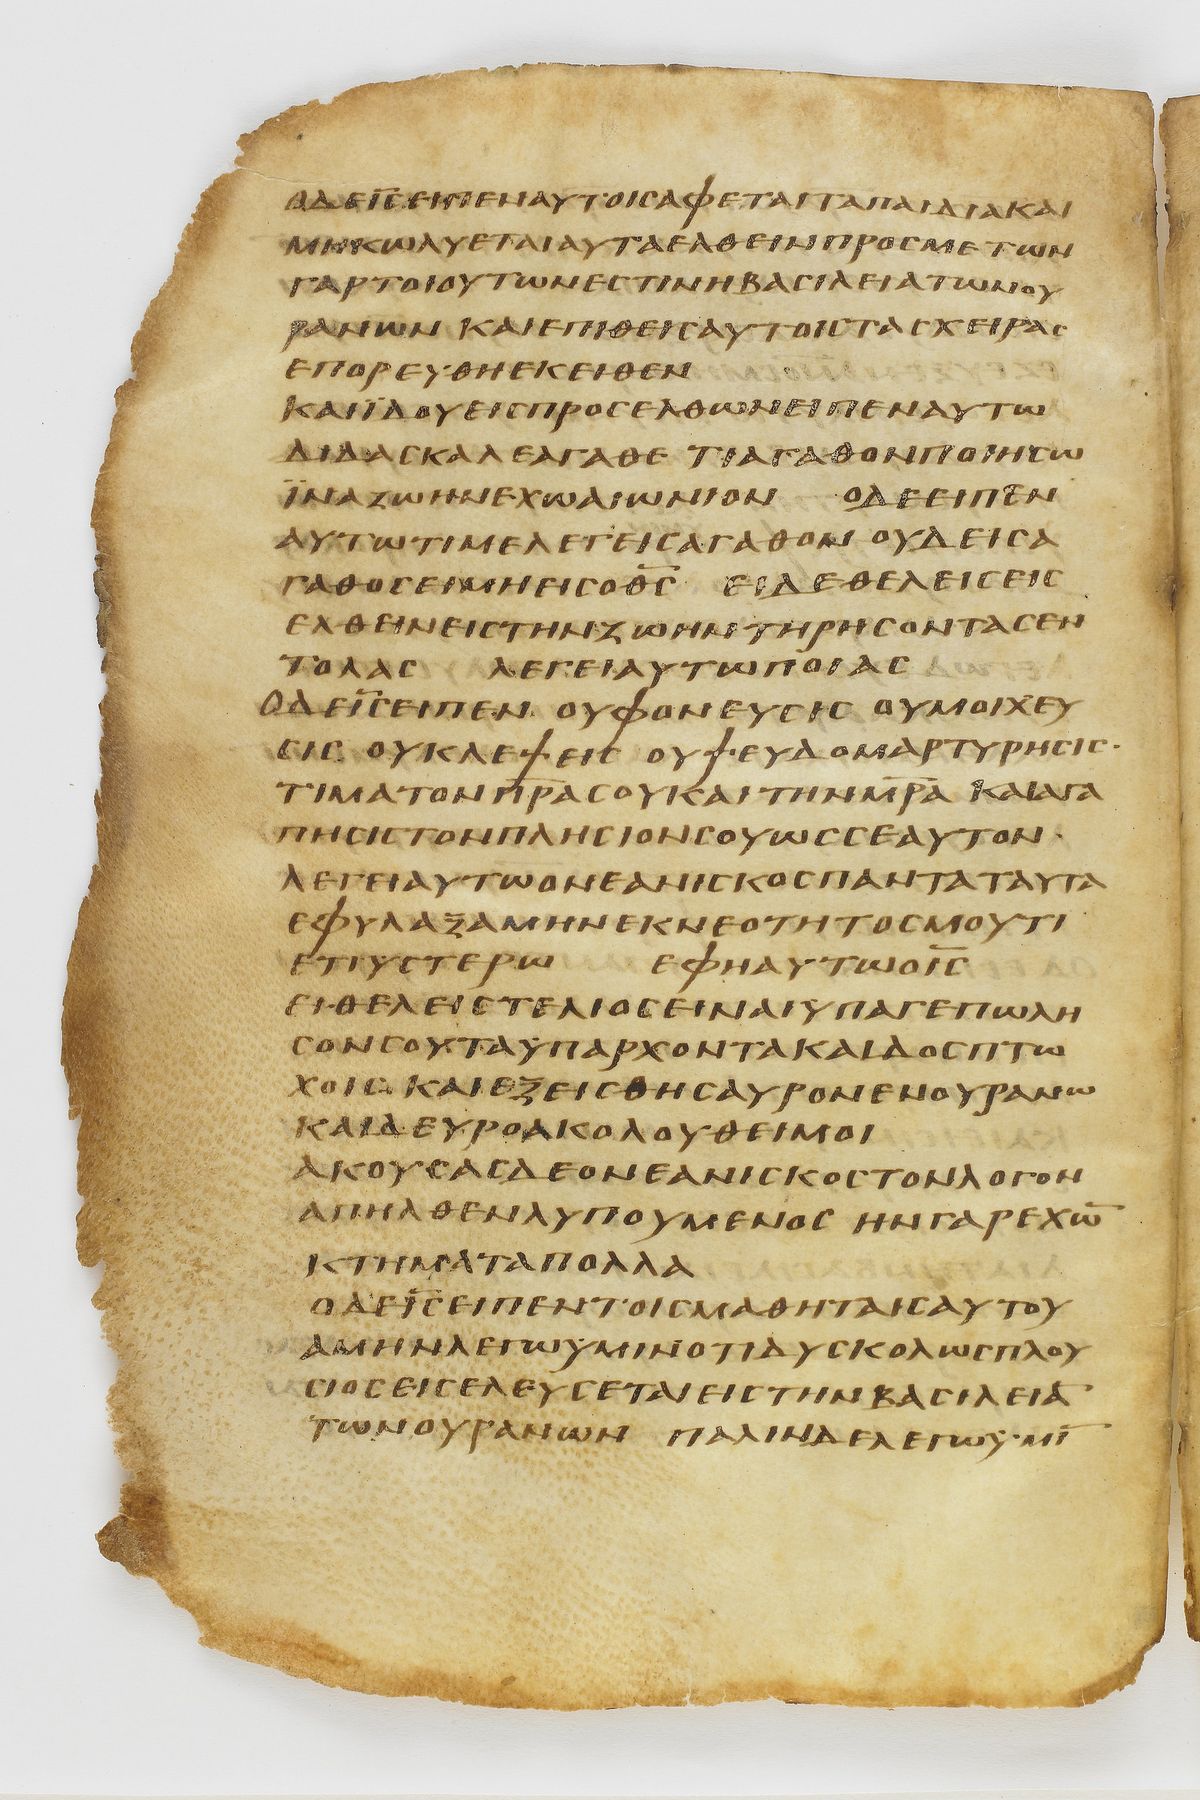 ΟΔΕΙ̅Ϲ̅ΕΙΠΕΝΑΥΤΟΙϹΑΦΕΤΑΙΤΑΠΑΙΔΙΑΚΑΙ
ΜΗΚΩΛΥΕΤΑΙΑΥΤΑΕΛΘΕΙΝΠΡΟϹΜΕΤΩΝ
ΓΑΡΤΟΙΟΥΤΩΝΕϹΤΙΝΗΒΑϹΙΛΕΙΑΤΩΝΟΥ
ΡΑΝΩΝ ΚΑΙΕΠΙΘΕΙϹΑΥΤΟΙϹΤΑϹΧΕΙΡΑϹ
ΕΠΟΡΕΥΘΗΕΚΕΙΘΕΝ
ΚΑΙΪΔΟΥΕΙϹΠΡΟϹΕΛΘΩΝΕΙΠΕΝΑΥΤΩ
ΔΙΔΑϹΚΑΛΕΑΓΑΘΕ ΤΙΑΓΑΘΟΝΠΟΙΗϹΩ
ΪΝΑΖΩΗΝΕΧΩΑΙΩΝΙΟΝ ΟΔΕΕΙΠΕΝ
ΑΥΤΩΤΙΜΕΛΕΓΕΙϹΑΓΑΘΟΝ ΟΥΔΕΙϹΑ
ΓΑΘΟϹΕΙΜΗΕΙϹΟΘ̅Ϲ̅ ΕΙΔΕΘΕΛΕΙϹΕΙϹ
ΕΛΘΕΙΝΕΙϹΤΗΝΖΩΗΝ ΤΗΡΗϹΟΝΤΑϹΕΝ
ΤΟΛΑϹ ΛΕΓΕΙΑΥΤΩΠΟΙΑϹ
ΟΔΕΙ̅Ϲ̅ΕΙΠΕΝ ΟΥΦΟΝΕΥϹΙϹ ΟΥΜΟΙΧΕΥ
ϹΙϹ ΟΥΚΛΕΨΕΙϹ ΟΥΨΕΥΔΟΜΑΡΤΥΡΗϹΙϹ·
ΤΙΜΑΤΟΝΠ̅Ρ̅Α̅ϹΟΥΚΑΙΤΗΝΜ̅Ρ̅Α̅ ΚΑΙΑΓΑ
ΠΗϹΙϹΤΟΝΠΛΗϹΙΟΝϹΟΥΩϹϹΕΑΥΤΟΝ·
ΛΕΓΕΙΑΥΤΩΟΝΕΑΝΙϹΚΟϹΠΑΝΤΑΤΑΥΤΑ
ΕΦΥΛΑΞΑΜΗΝΕΚΝΕΟΤΗΤΟϹΜΟΥΤΙ
ΕΤΙΥϹΤΕΡΩ ΕΦΗΑΥΤΩΟΙ̅Ϲ̅
ΕΙΘΕΛΕΙϹΤΕΛΙΟϹΕΙΝΑΙΥΠΑΓΕΠΩΛΗ
ϹΟΝϹΟΥΤΑΥΠΑΡΧΟΝΤΑΚΑΙΔΟϹΠΤΩ
ΧΟΙϹ ΚΑΙΕΞΕΙϹΘΗϹΑΥΡΟΝΕΝΟΥΡΑΝΩ
ΚΑΙΔΕΥΡΟΑΚΟΛΟΥΘΕΙΜΟΙ
ΑΚΟΥϹΑϹΔΕΟΝΕΑΝΙϹΚΟϹΤΟΝΛΟΓΟΝ
ΑΠΗΛΘΕΝΛΥΠΟΥΜΕΝΟϹ ΗΝΓΑΡΕΧΩ̅
ΚΤΗΜΑΤΑΠΟΛΛΑ
ΟΔΕΙ̅Ϲ̅ΕΙΠΕΝΤΟΙϹΜΑΘΗΤΑΙϹΑΥΤΟΥ
ΑΜΗΝΛΕΓΩΫΜΙΝΟΤΙΔΥϹΚΟΛΩϹΠΛΟΥ
ϹΙΟϹΕΙϹΕΛΕΥϹΕΤΑΙΕΙϹΤΗΝΒΑϹΙΛΕΙΑ̅
ΤΩΝΟΥΡΑΝΩΝ ΠΑΛΙΝΔΕΛΕΓΩΫΜΙ̅